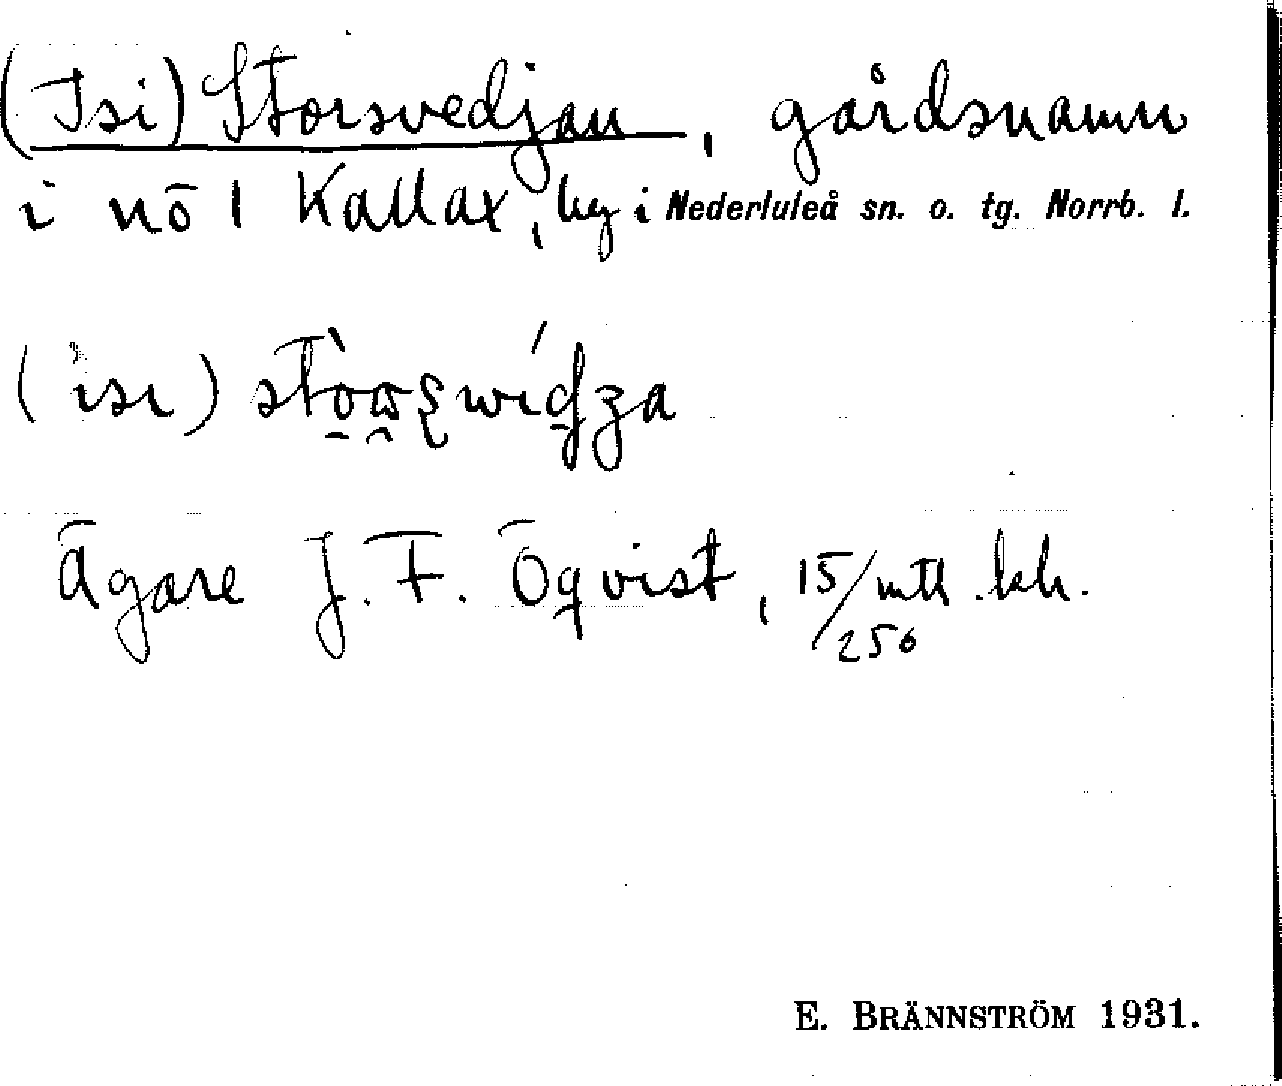 (Isi) Storsvedjan, gårdsnamn
i nö 1 Kallax, by i Nederluleå sn. o. tg. Norrb. l.
(ısı)
Ägare J. F. Öqvist, 15/256 mtl kh.
E. BRÄNNSTRÖM 1931.